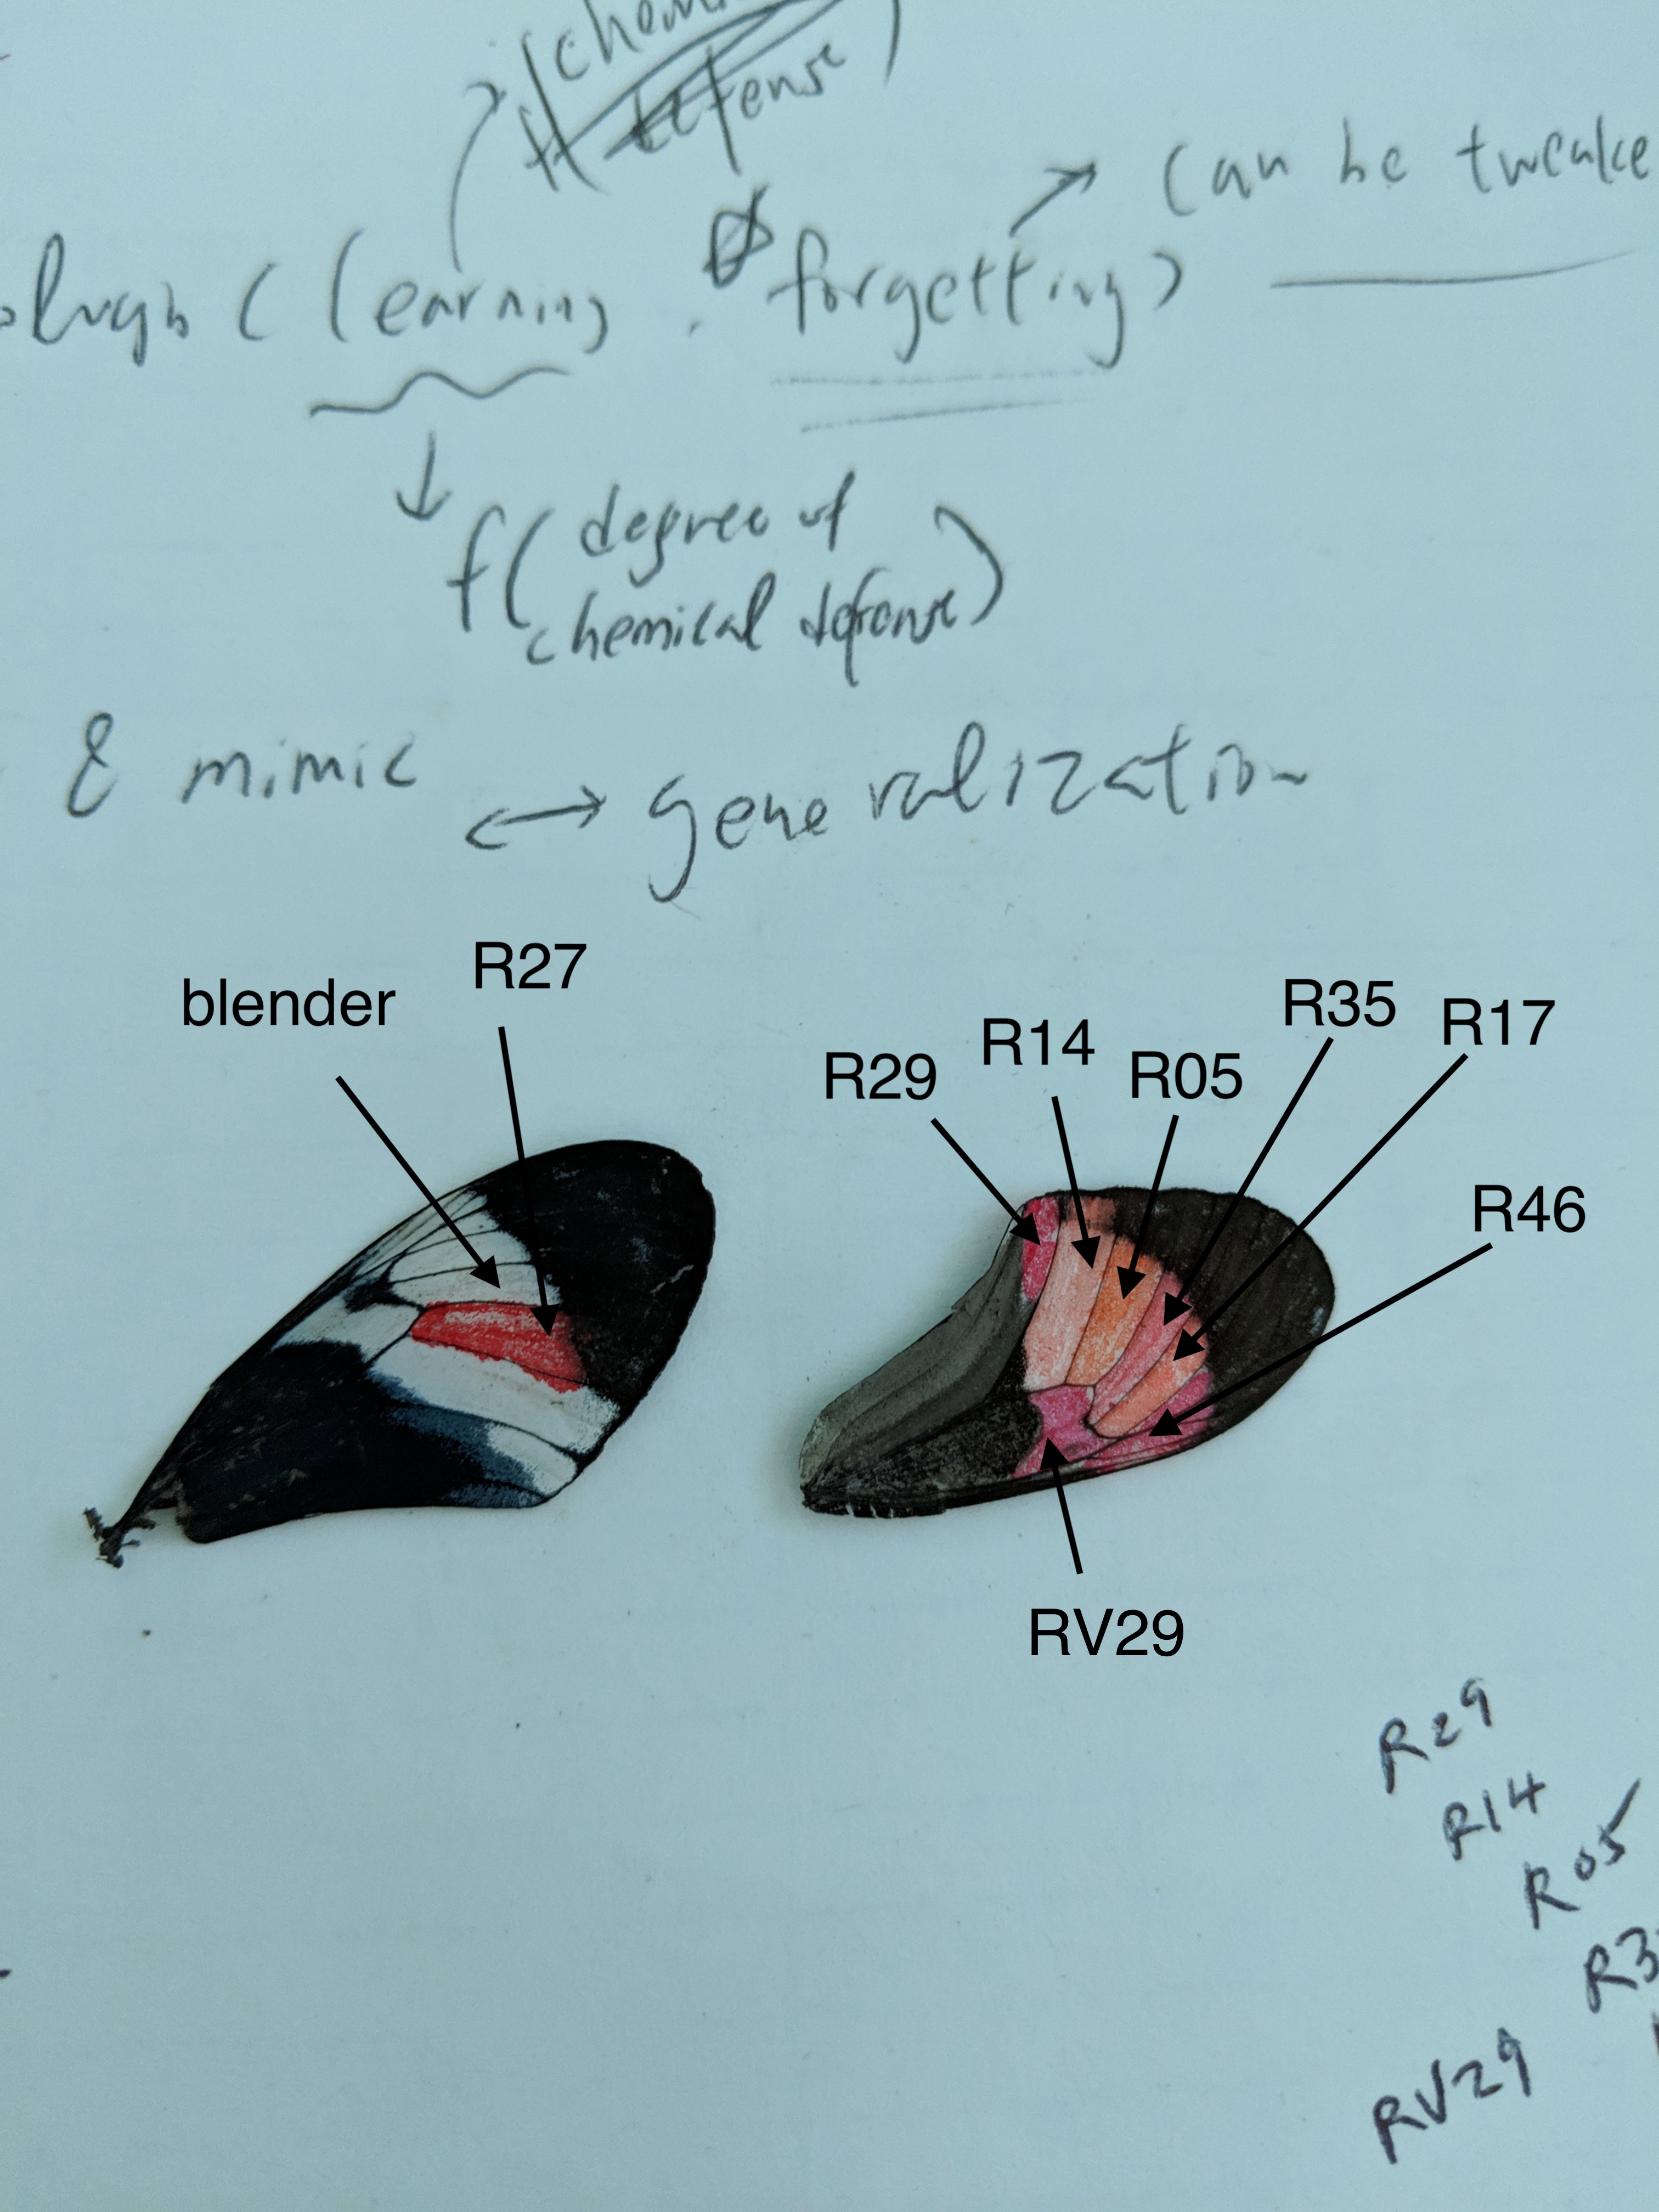 defense)
can be
(learning, forgetting)
f(degree of
chemical defense)
& mimic ↔ generalization
blender
R27
R29
R14
R05
R35
R17
R46
RV29
R29
R14
R05
RV29